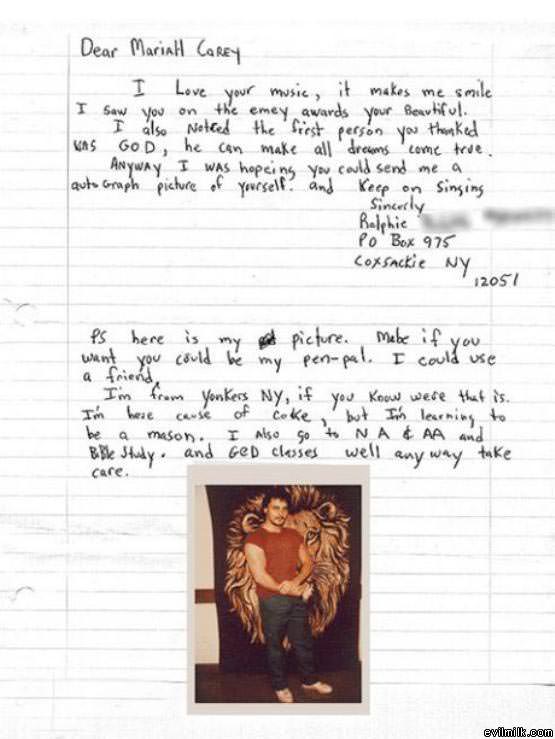 Dear Mariah Carey
I Love your music, it makes me smile
I saw you on the emey awards your Beautiful.
I also Noteed the first person you thanked
was GOD, he can make all dreams come true.
ANyway I was hopeing you could send me a
autoGraph picture of yourself. and Keep on Singing
Sincerly
Ralphie
PO Box 975
Coxsackie NY
12051
PS here is my picture. Mabe if you
want you could be my pen-pal. I could use
a friend.
I'm from Yonkers NY, if you Know were that is.
I'm here cause of coke, but I'm learning to
be a mason. I Also go to NA & AA and
Bible Study. and GeD classes well any way take
care.
evilmilk.com